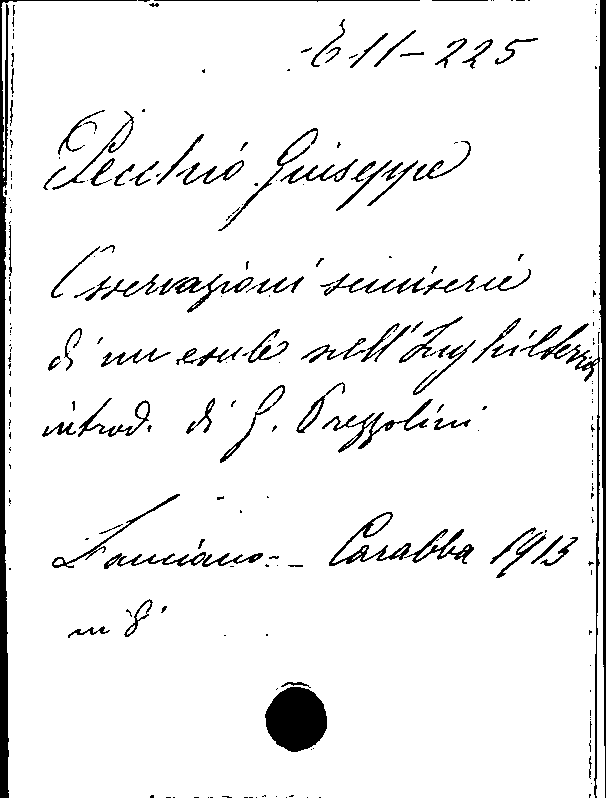 E 11-225
Pecchio Giuseppe
Osservazioni semiserie
di un esule nell'Inghilterra
introd. di G. Prezzolini
Lanciano - Carabba 1913
in 8°